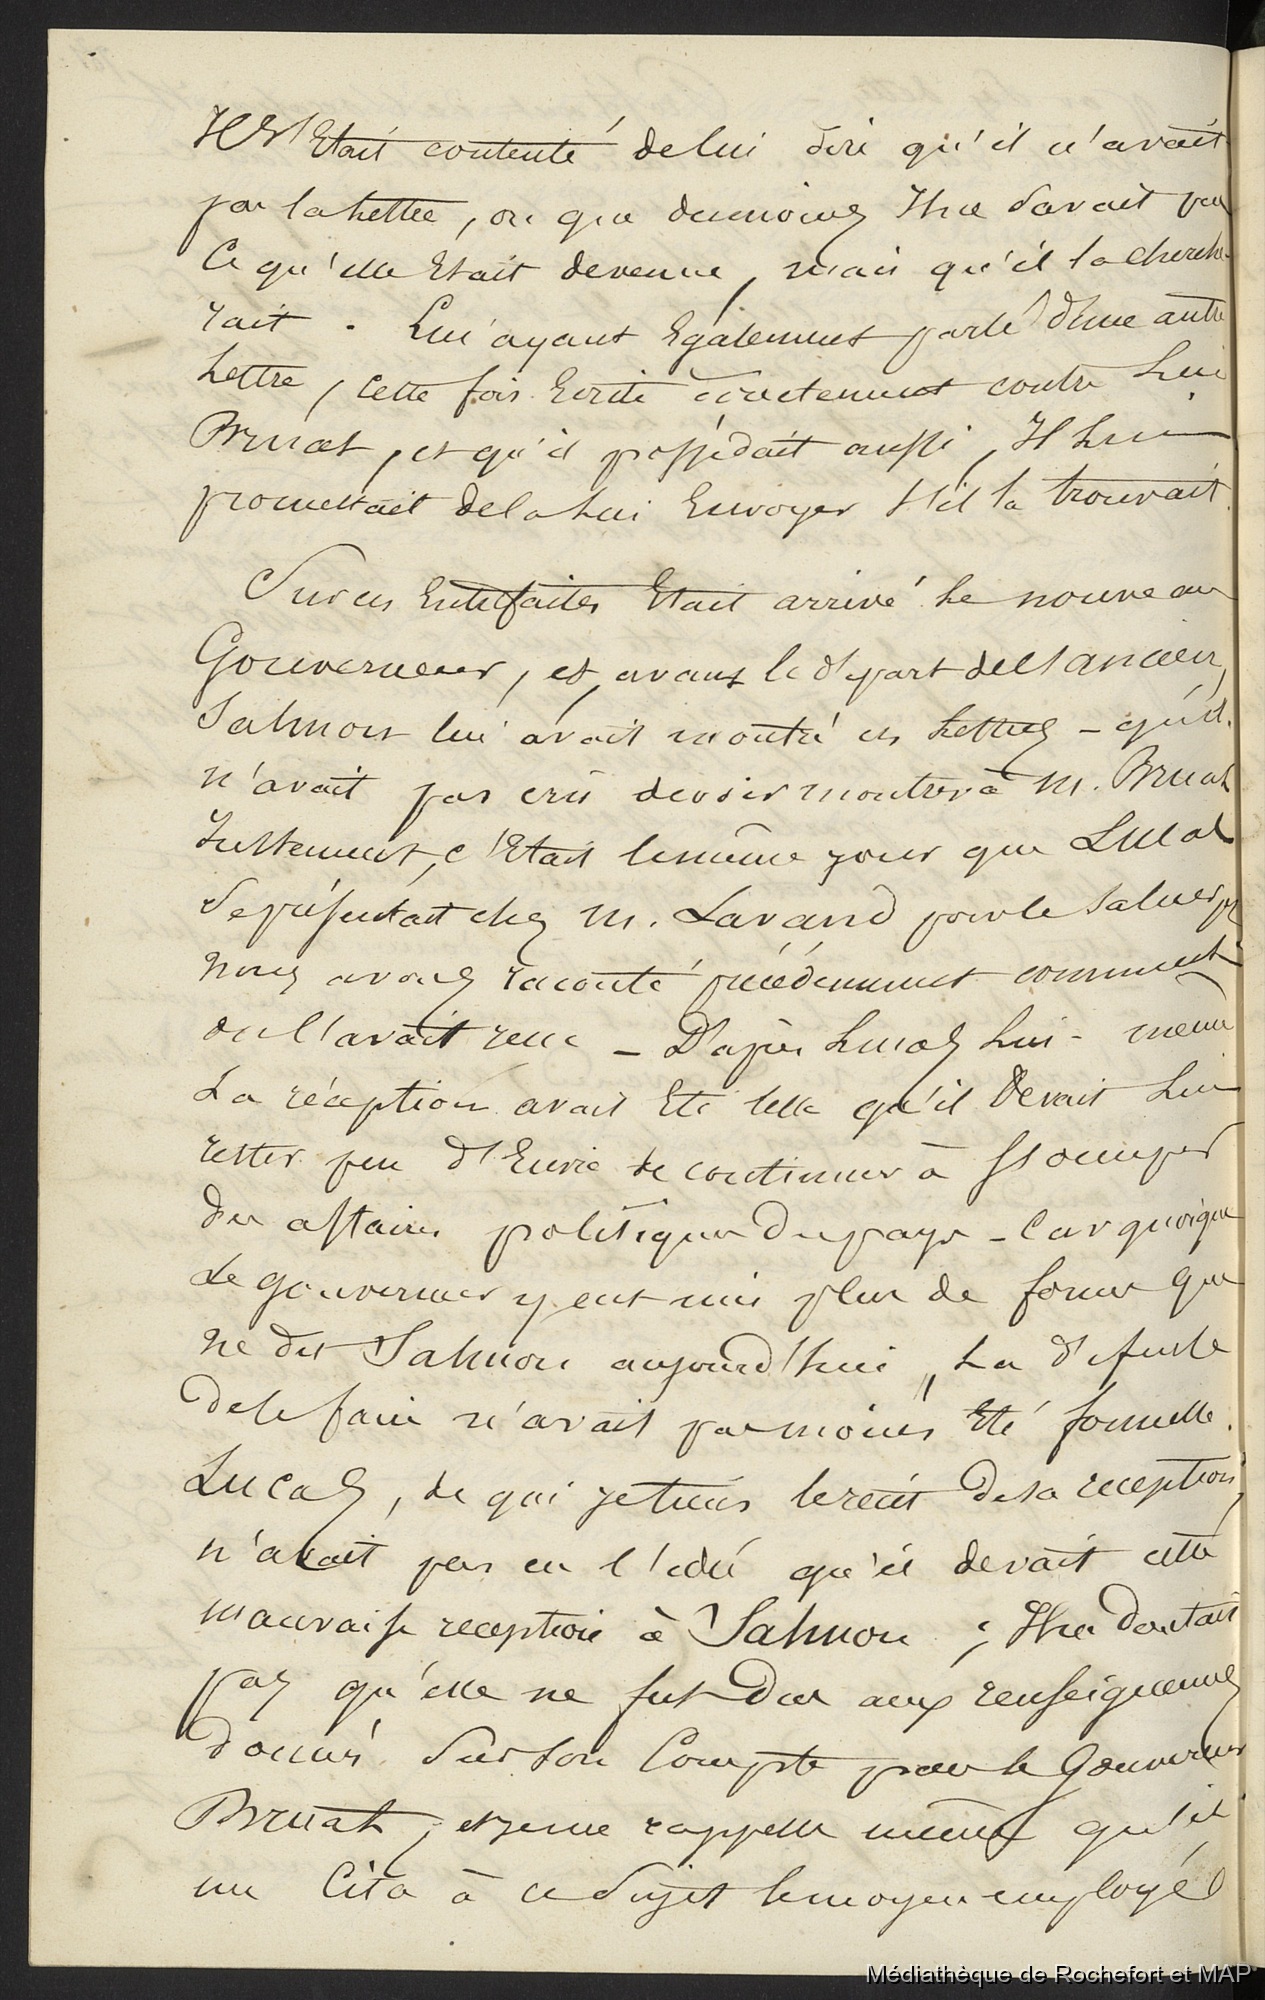 Il s'était contenté de lui dire qu'il n'avait
pas la lettre, ou que du moins Il ne savait pas
Ce qu'elle était devenue, mais qu'il la cherche-
rait. Lui ayant également parlé d'une autre
Lettre, cette fois écrite directement contre Lui
Bruat, et qu'il possédait aussi, Il Lui
promettait de la Lui Envoyer s'il la trouvait.
Sur ces Entrefaites était arrivé Le nouveau
Gouverneur, et, avant le départ de l'ancien,
Salmon lui avait montré ces Lettres - qu'il
n'avait pas cru devoir montrer à M. Bruat
Justement, c'était le même jour que Lucas
se présentait chez M. Lavaud pour le saluer,
nous avons raconté précédemment comment
on l'avait reçu - D'après Lucas Lui-même
La réception avait été telle qu'il devait Lui
rester peu d'Envie de continuer à s'occuper
des affaires politiques du pays - Car quoique
Le gouverneur y eut mis plus de formes que
ne dit Salmon aujourd'hui, La défense
de le faire n'avait pas moins été formelle.
Lucas, de qui je tiens le récit de sa reception,
n'avait pas eu l'idée qu'il devait cette
mauvaise reception à Salmon ; Il ne doutait
pas qu'elle ne fut due aux renseignements
donnés sur son Compte par le Gouverneur
Bruat, et je me rappelle même qu'il
me Cita à ce sujet le moyen employé